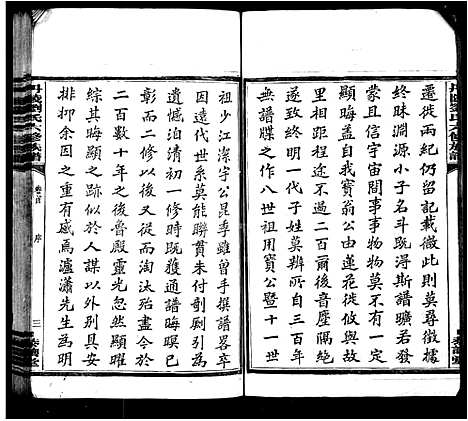 遷徙兩可留存記載微此則莫尋徵據
終昧淵源小子名斗既得斯譜曠若發
蒙且信宇宙間事事物物莫不有一定
顯晦蓋自我寶翁公由蓮花從徙攸兩
里相距程途不過二百爾後音塵隔絕
幾無與明一代子姓莫辨誰何三百年
無譜牒之作八世祖用寶公暨十一世
祖少江潔宇公昆季雖曾手撰譜畧卒
因遠代世系莫能聯貫未付剞劂引為
遺憾洎清初一修時既獲通譜晦暝已
彰而二修以後從而淘汰殆盡今於
二百數十年之後魯殿靈光忽然顯曜
綜其晦而顯者於人謀以外別有安
排抑余因之重有感焉瀘瀟先生為明
丹陵劉氏六修族譜
卷首
序
三